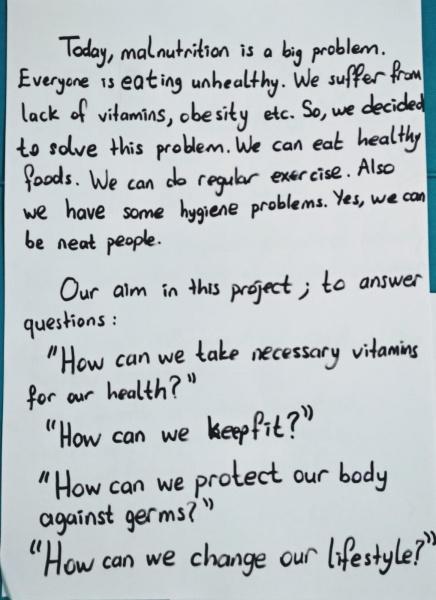 Today, malnutrition is a big problem.
Everyone is eating unhealthy. We suffer from
lack of vitamins, obesity etc. So, we decided
to solve this problem. We can eat healthy
foods. We can do regular exercise. Also
we have some hygiene problems. Yes, we can
be neat people.
Our aim in this project ; to answer
questions :
"How can we take necessary vitamins
for our health?"
"How can we keepfit?"
"How can we protect our body
against germs?"
"How can we change our lifestyle?"